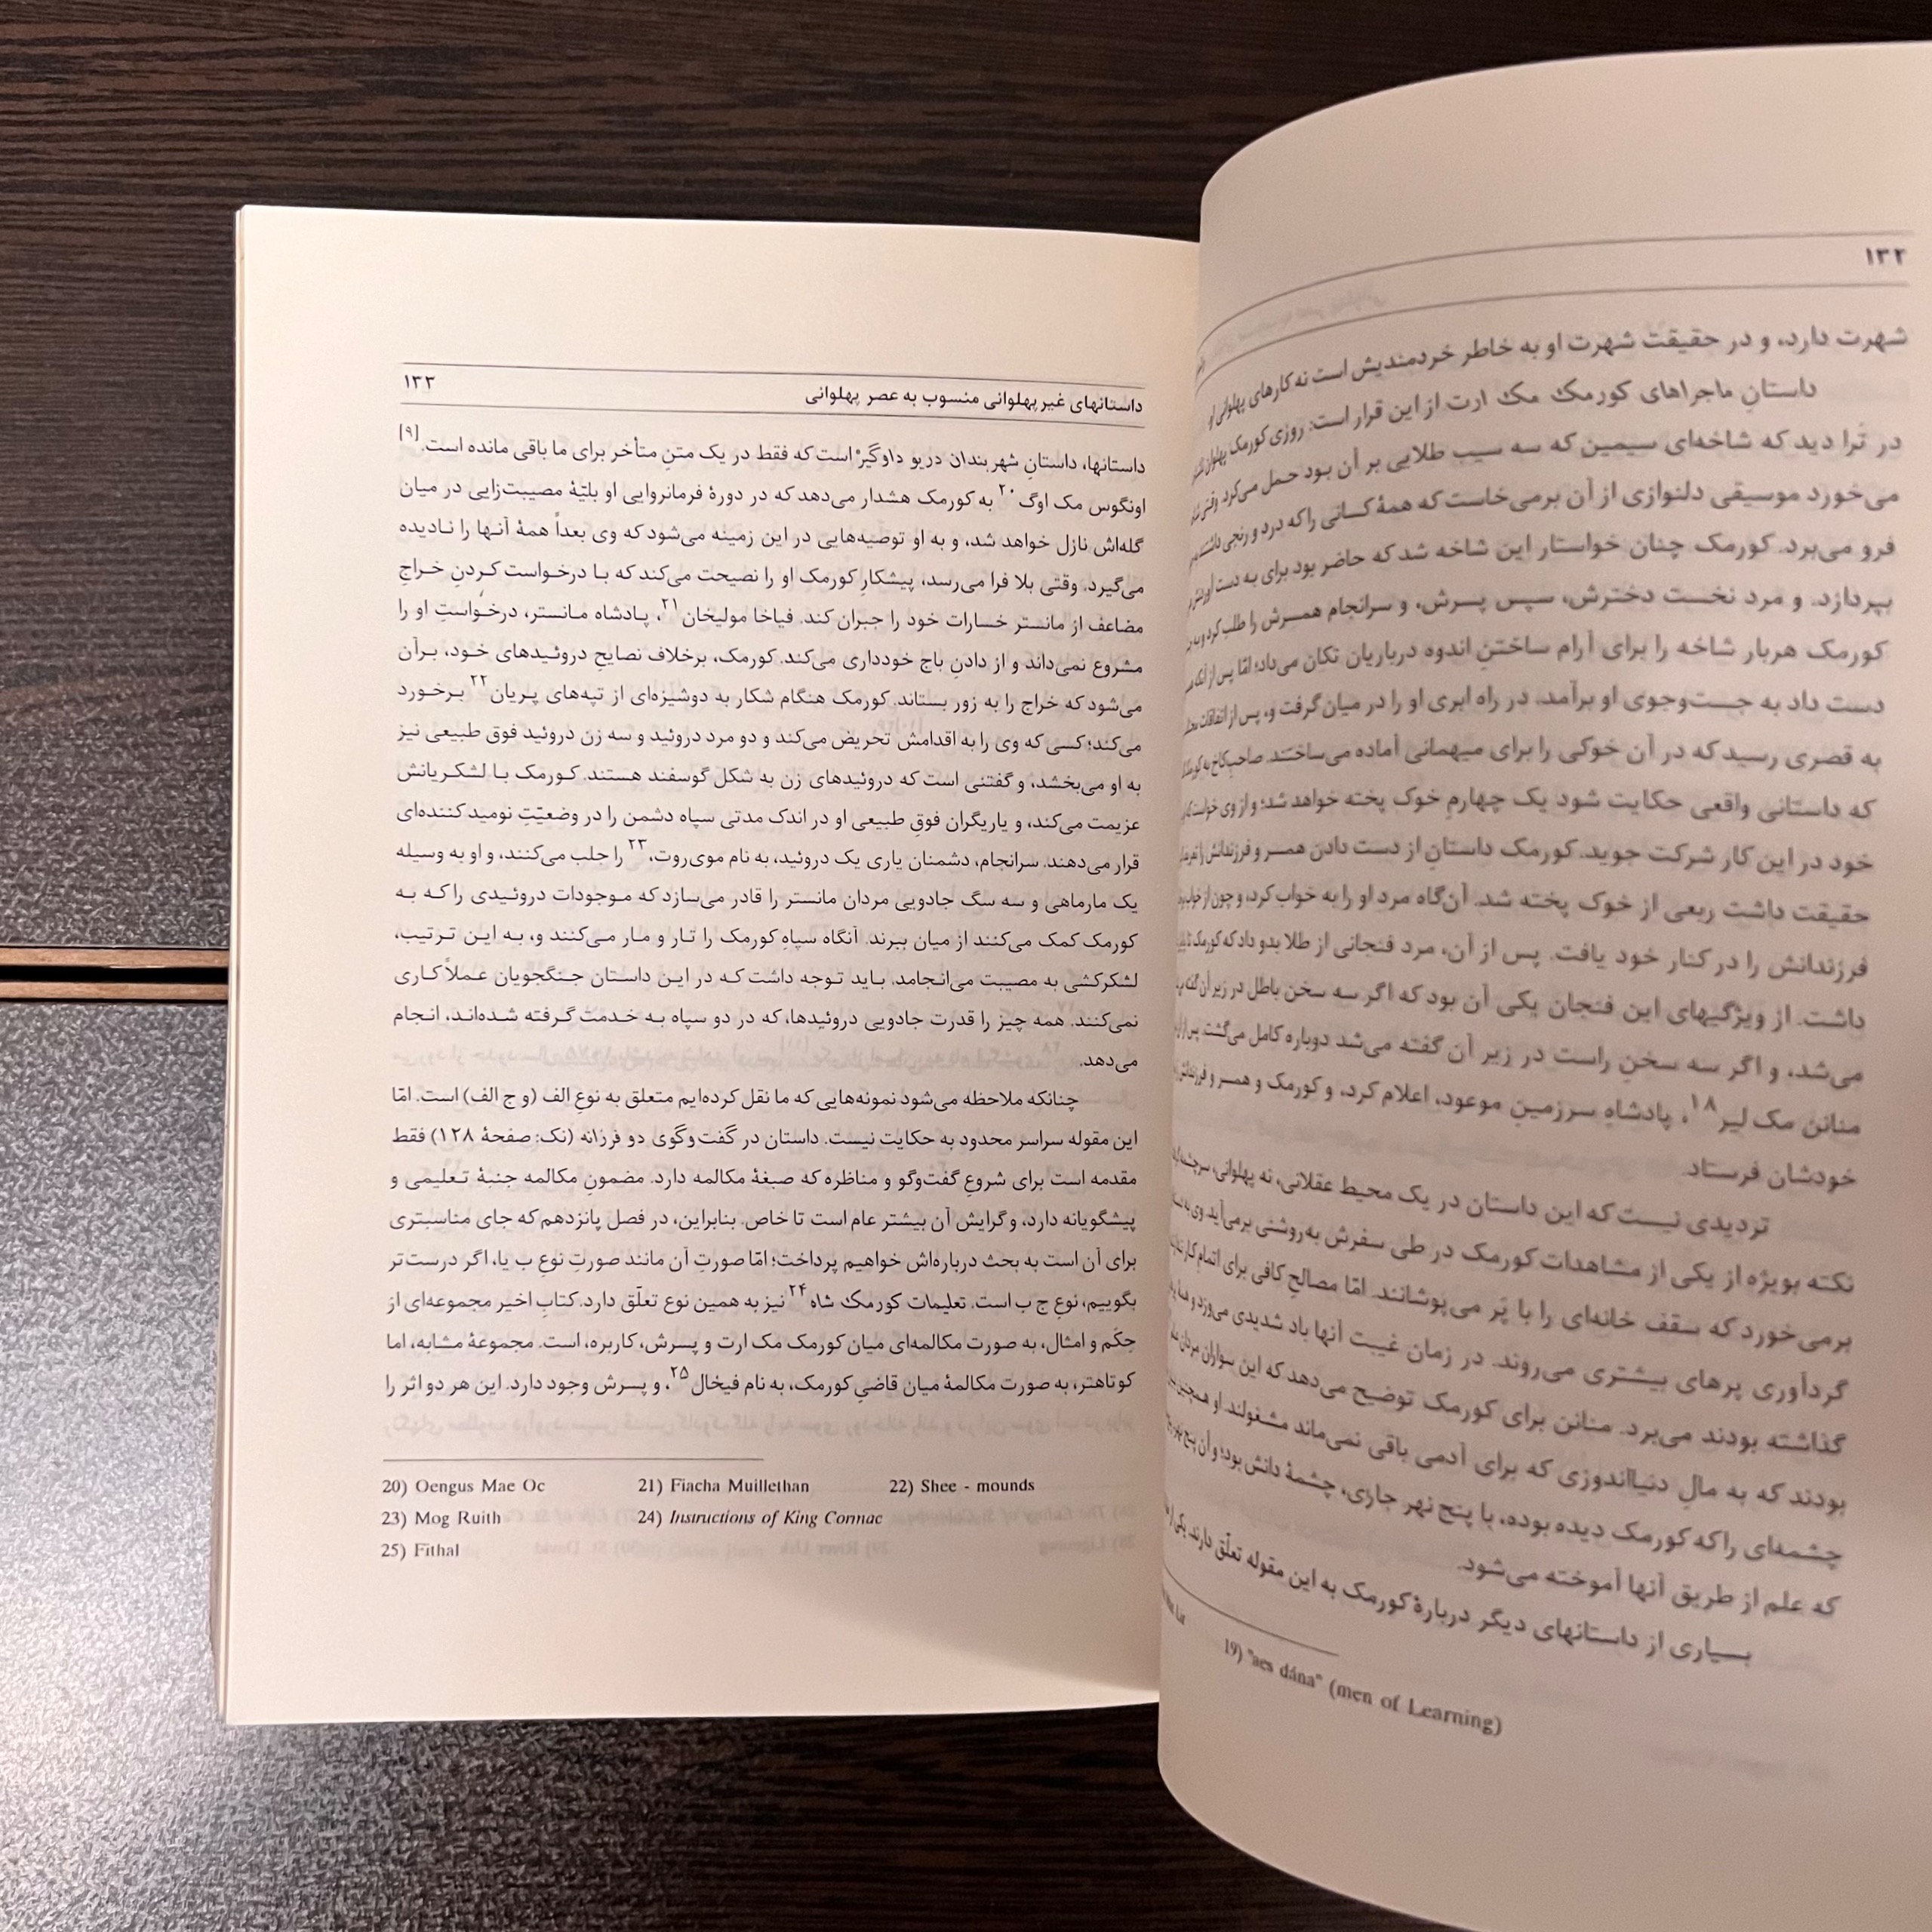 ۱۳۲
شهرت دارد، و در حقیقت شهرت او به خاطر خردمندیش است نه کارهای پهلوانی او
داستانِ ماجراهای کورمک مک ارت از این قرار است: روزی کورمک پهلوان
در تَرا دید که شاخه‌ای سیمین که سه سیب طلایی بر آن بود حمل می‌کرد. وقتی
می‌خورد موسیقی دلنوازی از آن برمی‌خاست که همهٔ کسانی را که درد و رنجی داشتند
فرو می‌برد. کورمک چنان خواستار این شاخه شد که حاضر بود برای به دست آوردنش
بپردازد. و مرد نخست دخترش، سپس پسرش، و سرانجام همسرش را طلب کرد و
کورمک هربار شاخه را برای آرام ساختنِ اندوه درباریان تکان می‌داد؛ امّا پس از آنکه
دست داد به جست‌وجوی او برآمد. در راه ابری او را در میان گرفت و، پس از اتفاقات
به قصری رسید که در آن خوکی را برای میهمانی آماده می‌ساختند. صاحبِ کاخ به
که داستانی واقعی حکایت شود یک چهارمِ خوک پخته خواهد شد؛ و از وی خواست که
خود در این کار شرکت جوید. کورمک داستانِ از دست دادن همسر و فرزندانش را
حقیقت داشت ربعی از خوک پخته شد. آن‌گاه مرد او را به خواب کرد، و چون از خواب
فرزندانش را در کنار خود یافت. پس از آن، مرد فنجانی از طلا بدو داد که کورمک
داشت. از ویژگیهای این فنجان یکی آن بود که اگر سه سخن باطل در زیر آن گفته
می‌شد، و اگر سه سخنِ راست در زیر آن گفته می‌شد دوباره کامل می‌گشت. پس از
منانن مک لیر۱۸، پادشاهِ سرزمینِ موعود، اعلام کرد، و کورمک و همسر و فرزندانش
خودشان فرستاد.
تردیدی نیست که این داستان در یک محیط عقلانی، نه پهلوانی،
نکته بویژه از یکی از مشاهدات کورمک در طی سفرش به‌روشنی برمی‌آید. وی به
برمی‌خورد که سقف خانه‌ای را با پَر می‌پوشانند. امّا مصالحِ کافی برای اتمام کار
گردآوری پرهای بیشتری می‌روند. در زمان غیبت آنها باد شدیدی می‌وزد و
گذاشته بودند می‌برد. منانن برای کورمک توضیح می‌دهد که این سواران مردان
بودند که به مالِ دنیااندوزی که برای آدمی باقی نمی‌ماند مشغولند. او همچنین
چشمه‌ای را که کورمک دیده بوده، با پنج نهر جاری، چشمهٔ دانش بود؛ و آن پنج
که علم از طریق آنها آموخته می‌شود.
بسیاری از داستانهای دیگر دربارهٔ کورمک به این مقوله تعلّق دارند. یکی از
19) "aes dána" (men of Learning)
داستانهای غیرپهلوانی منسوب به عصر پهلوانی ۱۳۳
داستانها، داستانِ شهربندان دریو داوگیر است که فقط در یک متنِ متأخر برای ما باقی مانده است.[۹]
اونگوس مک اوگ۲۰ به کورمک هشدار می‌دهد که در دورهٔ فرمانروایی او بلیّهٔ مصیبت‌زایی در میان
گله‌اش نازل خواهد شد، و به او توصیه‌هایی در این زمینه می‌شود که وی بعداً همهٔ آنها را نادیده
می‌گیرد. وقتی بلا فرا می‌رسد، پیشکارِ کورمک او را نصیحت می‌کند که با درخواست کردنِ خراجِ
مضاعف از مانستر خسارات خود را جبران کند. فیاخا مولیخان۲۱، پادشاه مانستر، درخواستِ او را
مشروع نمی‌داند و از دادنِ باج خودداری می‌کند. کورمک، برخلاف نصایحِ دروئیدهای خود، برآن
می‌شود که خراج را به زور بستاند. کورمک هنگام شکار به دوشیزه‌ای از تپه‌های پریان۲۲ برخورد
می‌کند؛ کسی که وی را به اقدامش تحریض می‌کند و دو مرد دروئید و سه زن دروئید فوق طبیعی نیز
به او می‌بخشد، و گفتنی است که دروئیدهای زن به شکل گوسفند هستند. کورمک با لشکریانش
عزیمت می‌کند، و یاریگران فوقِ طبیعی او در اندک مدتی سپاه دشمن را در وضعیّتِ نومید کننده‌ای
قرار می‌دهند. سرانجام، دشمنان یاری یک دروئید، به نام موی‌روت،۲۳ را جلب می‌کنند، و او به وسیله
یک مارماهی و سه سگ جادویی مردان مانستر را قادر می‌سازد که موجودات دروئیدی را که به
کورمک کمک می‌کنند از میان ببرند. آنگاه سپاهِ کورمک را تار و مار می‌کنند و، به این ترتیب،
لشکرکشی به مصیبت می‌انجامد. باید توجه داشت که در این داستان جنگجویان عملاً کاری
نمی‌کنند. همه چیز را قدرت جادویی دروئیدها، که در دو سپاه به خدمت گرفته شده‌اند، انجام
می‌دهد.
چنانکه ملاحظه می‌شود نمونه‌هایی که ما نقل کرده‌ایم متعلق به نوعِ الف (و ج الف) است. امّا
این مقوله سراسر محدود به حکایت نیست. داستان در گفت‌وگوی دو فرزانه (نک: صفحهٔ ۱۲۸) فقط
مقدمه است برای شروعِ گفت‌وگو و مناظره که صبغهٔ مکالمه دارد. مضمونِ مکالمه جنبهٔ تعلیمی و
پیشگویانه دارد، و گرایش آن بیشتر عام است تا خاص. بنابراین، در فصل پانزدهم که جای مناسبتری
برای آن است به بحث درباره‌اش خواهیم پرداخت؛ امّا صورتِ آن مانند صورتِ نوعِ ب یا، اگر درست‌تر
بگوییم، نوعِ ج ب است. تعلیمات کورمک شاه۲۴ نیز به همین نوع تعلّق دارد. کتابِ اخیر مجموعه‌ای از
حِکَم و امثال، به صورت مکالمه‌ای میان کورمک مک ارت و پسرش، کاربره، است. مجموعهٔ مشابه، اما
کوتاهتر، به صورت مکالمهٔ میان قاضیِ کورمک، به نام فیخال۲۵، و پسرش وجود دارد. این هر دو اثر را
20) Oengus Mae Oc 21) Fiacha Muillethan 22) Shee - mounds
23) Mog Ruith 24) Instructions of King Cormac
25) Fithal